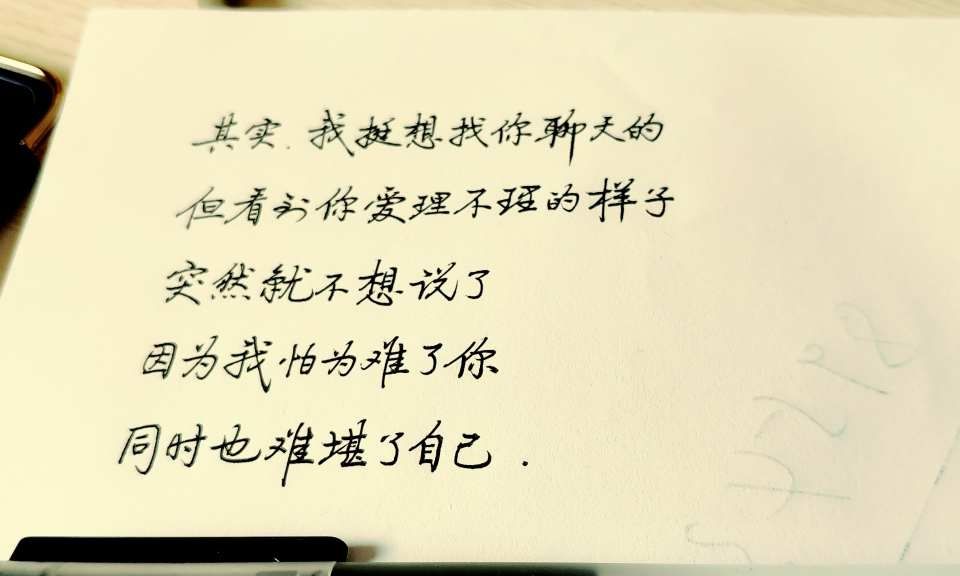 其实.我挺想找你聊天的
但看到你爱理不理的样子
突然就不想说了
因为我怕为难了你
同时也难堪了自己.